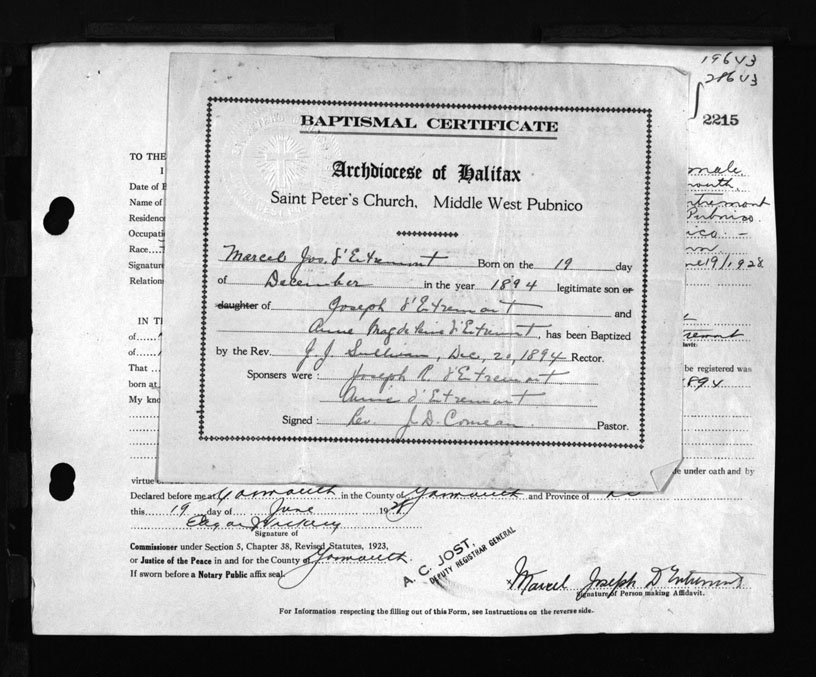 19643
28643
2215
BAPTISMAL CERTIFICATE
Archdiocese of Halifax
Saint Peter's Church, Middle West Pubnico
Marcel Jos. d'Entremont Born on the 19 day
of December in the year 1894 legitimate son or
daughter of Joseph d'Entremont and
Anne Magdeleine d'Entremont, has been Baptized
by the Rev. J. J. Sullivan, Dec, 20, 1894 Rector.
Sponsors were : Joseph R. d'Entremont
Annie d'Entremont
Signed : Rev. J. D. Comeau Pastor.
TO THE
I male
Date of
Name of
Residence Pubnico.
Occupati
Race
Signature 19/1928
Relation
IN T
of
of
That be registered was
born at 1894
My kno
de under oath and by
virtue
Declared before me at Yarmouth in the County of Yarmouth and Province of NS
this 19 day of June 1928
Signature of
Commissioner under Section 5, Chapter 38, Revised Statutes, 1923,
or Justice of the Peace in and for the County of Yarmouth.
If sworn before a Notary Public affix seal.
A. C. JOST,
DEPUTY REGISTRAR GENERAL
x Marcel Joseph D'Entremont
Signature of Person making Affidavit.
For Information respecting the filling out of this Form, see Instructions on the reverse side.